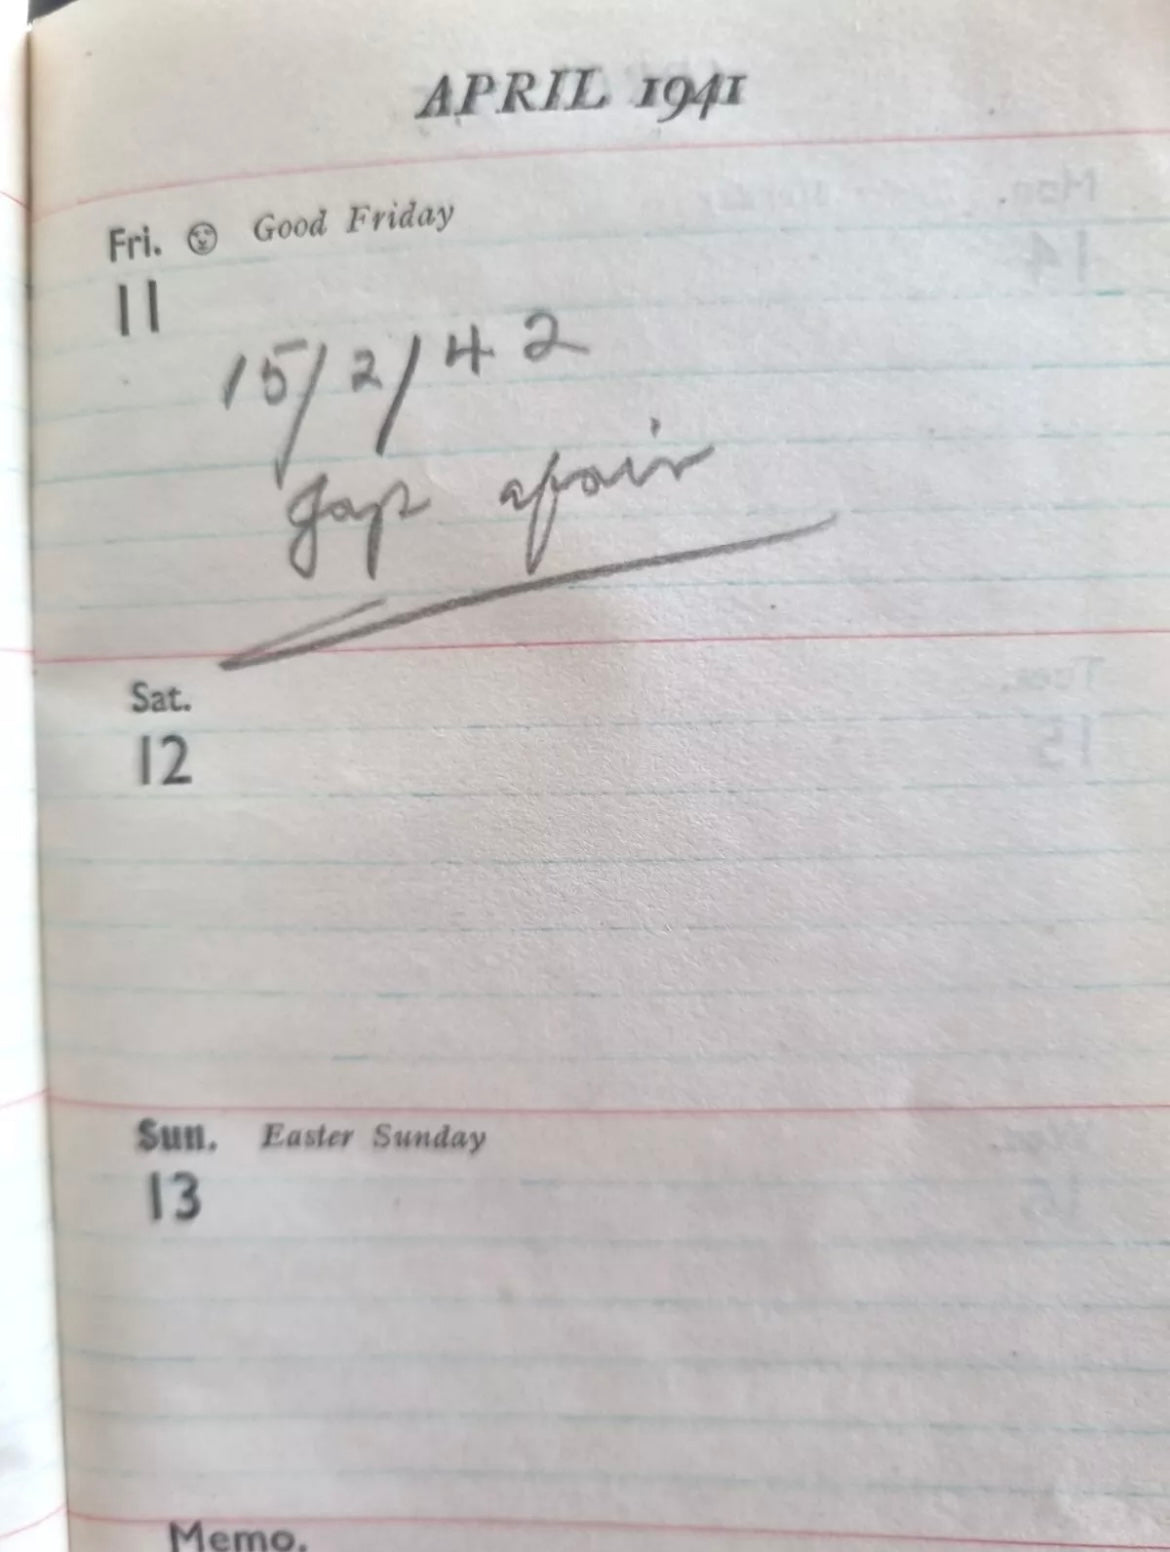 APRIL 1941
Fri. Good Friday
11
15/2/42
Jap
Sat.
12
Sun. Easter Sunday
13
Memo.